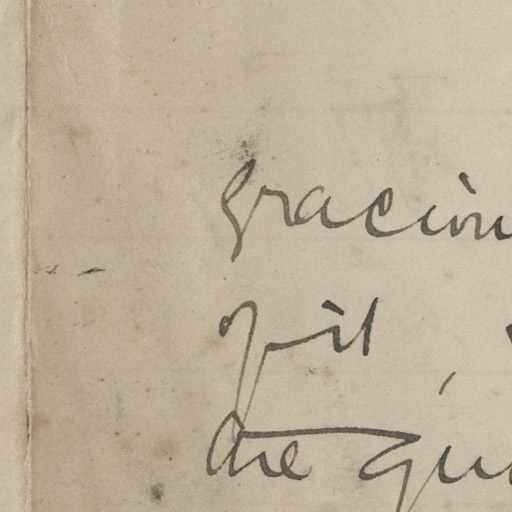 graciou
of it,
the qu